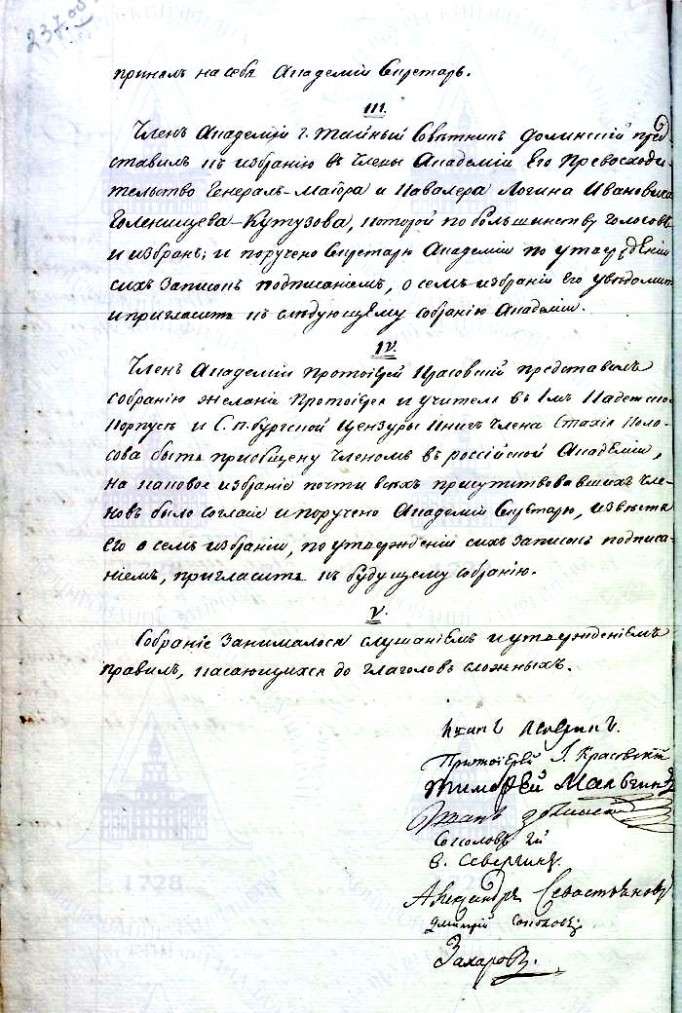 237.об
принялъ на себя Академіи Секретарь.
III.
Членъ Академіи г. Тайный Совѣтникъ Фолинскій пред-
ставилъ къ избранію въ Члены Академіи Его Превосходи-
тельство Генералъ-Маіора и Кавалера Логина Ивановича
Голенищева-Кутузова, которой по большинству голосовъ
и избранъ; и поручено Секретарю Академіи по утвержденіи
сихъ записокъ подписаніемъ, о семъ избраніи Его увѣдомить
и пригласить къ слѣдующему собранію Академіи.
IV.
Членъ Академіи Протоіерей Красовскій представилъ
собранію желаніе Протоіерея и учителя въ 1мъ Кадетском
Корпусѣ и С.п.бургской Цензуры Книгъ Члена Стахія Коло-
сова быть пріобщену Членомъ въ россійской Академіи,
на каковое избраніе почти всѣхъ присутствовавшихъ чле-
новъ было согласіе и поручено Академіи Секретарю, извѣстя
Его о семъ избраніи, по утвержденіи сихъ записокъ подписа-
ніемъ, пригласить къ будущему собранію.
V.
Собраніе занималося слушаніемъ и утвержденіемъ
правилъ, касающихся до глаголовъ сложныхъ.
Протоіерей І. Красовскій
Тимофей Мальгинъ
Соколовъ
В. Севергинъ.
Александръ Севастьяновъ
Дмитрій Соколовъ
Захаровъ.
1728